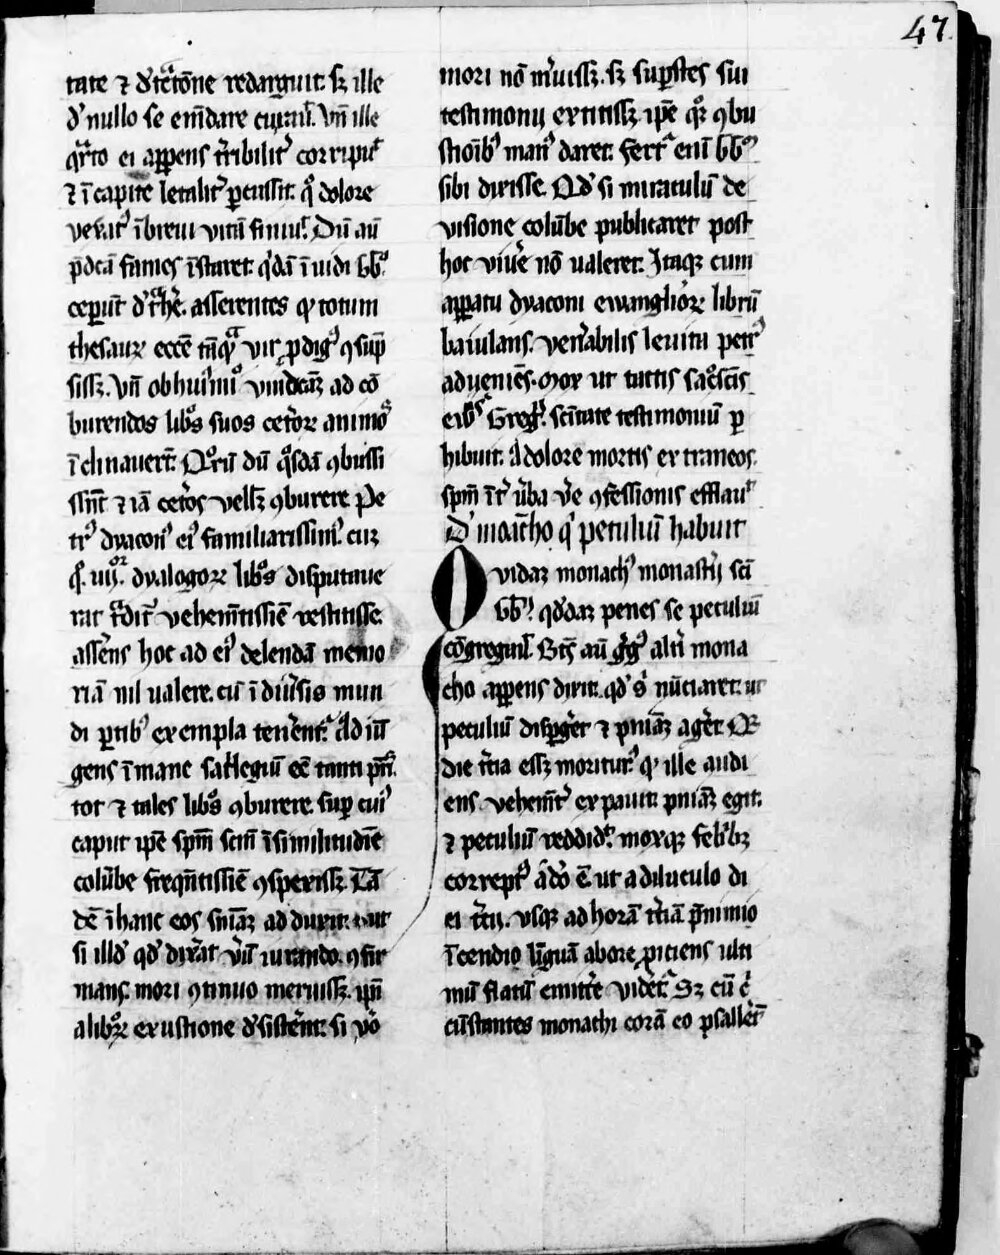 47
tate ⁊ d̕tc̄tōne redarguit. sꝫ ille
d̕ nullo se em̄dare curauit. Vn̄ ille
qͣrto ei apꝑens t̕ribilit̕ corripuit
⁊ ī capite letalit̕ ꝑcussit. qͦ dolore
vexatꝰ ī breui vitā finiuit. Dū aū
p̄dc̄a fames īstaret. qͥdā īuidi gg̕ꝰ
ceperūt d̕t̕he. asserentes ꝙ totum
thesauꝝ ecc̄e tāqͣ vir ꝓdigꝰ ꝯsūp
sissꝫ. Vn̄ ob huiꝰmōi vindictaꝫ ad cō
burendos libͦs suos cet̕oꝝ animos
īclinauert̄. Qͦrū dū qͦsdā ꝯbussi
ssēt ⁊ iā cet̕os vellꝫ ꝯburere Pe
trꝰ dyaconꝰ eiꝰ familiarissimꝰ. cuꝫ
qͦ .iiij. dyalogoꝝ libͦs disputaue
rat t̕dit̕ vehemētissīe restitisse.
assēns hoc ad eiꝰ delendā memo
riā nil ualere. cū ī diu̕sis mun
di ꝑtibꝰ exempla tenēnt̕. Adiū
gens īmane sac̕legiū eē tanti pr̄is
tot ⁊ tales libͦs ꝯburere. suꝑ cuiꝰ
caput ip̄e sp̄m scm̄ ī similitudīe
colūbe freqn̄tissīe ꝯspexissꝫ. Tā
dē ī hanc eos sn̄iaꝫ adduxit. vt
si illd̕ qd̕ dix̕at v̕ū iurando. ꝯfir
mans. mori ꝯtinuo meruissꝫ. ip̄i
a libroꝝ exustione d̕sistēnt. si v̕o
mori nō m̕uissꝫ. sꝫ suꝑstes sui
testimonij extitissꝫ ip̄e qͦꝫ ꝯbu
stiōibꝰ manꝰ daret. Fert̕ enī gg̕ꝰ
sibi dixisse. Qd̕ si miraculū de
visione colūbe publicaret post
hoc viu̕e nō ualeret. Itaqꝫ cum
apꝑatu dyaconi ewangelioꝝ librū
baiulans. ven̕abilis leuita petrꝰ
adueniēs. mox ut tactis sac̕oscīs
Greg̕. scītate testimoniū ꝑ
hibuit. A dolore mortis extraneos
sp̄m īt̕ u̕ba v̕e ꝯfessionis efflauit
D̕ monacho qͥ peculiū habuit
Qvidaꝫ monachꝰ monastij sc̄i
gg̕ꝰ. qͦddaꝫ penes se peculiū
cōgregauit. Btūs aū gg̕ꝰ alt̕i mona
cho apꝑens dixit. qd̕ s̕ nūciaret. ut
peculiū disꝑg̕et ⁊ pn̄iaꝫ ag̕et. Qꝛ
die t̕tia essꝫ moriturꝰ. qͦ ille audi
ens vehemēt̕ expauit. pn̄iaꝫ egit.
⁊ peculiū reddidit. moxqꝫ febribꝫ
correptꝰ adeo ē ut a diluculo di
ei t̕tij. vsqꝫ ad horā t̕tiā p̄ nimio
īcendio līguā ab ore ꝓiciens ulti
mū flatū emitt̕e videt̕. Sꝫ cū c̕
cūstantes monachi corā eo psallerēt